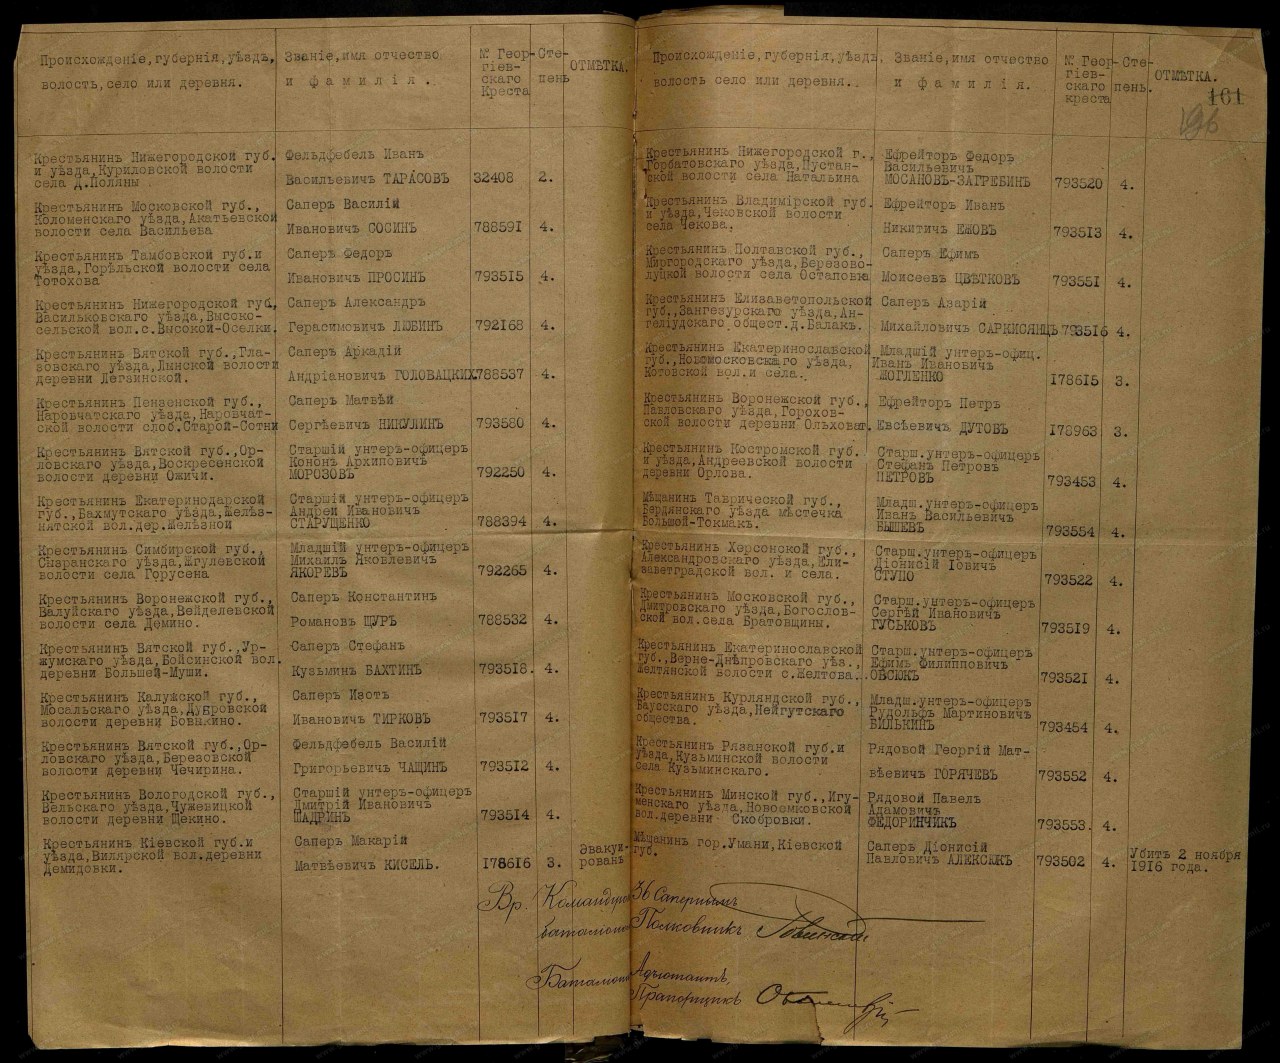 Происхожденіе,губернія,уѣздъ,
волость,село или деревня.
Званіе,имя отчество
и фамилія.
№ Геор-
гіев-
скаго
Креста
Сте-
пень
ОТМѢТКА.
Крестьянинъ Нижегородской губ.
и уѣзда,Куриловской волости
села Д.Поляны
Фельдфебель Иванъ
Васильевичъ ТАРАСОВЪ 32408 2.
Крестьянинъ Московской губ.,
Коломенскаго уѣзда,Акатьевской
волости села Васильева
Саперъ Василій
Ивановичъ СОСИНЪ 788591 4.
Крестьянинъ Тамбовской губ.и
уѣзда,Горѣльской волости села
Тотохова
Саперъ Федоръ
Ивановичъ ПРОСИНЪ 793515 4.
Крестьянинъ Нижегородской губ,
Васильковскаго уѣзда,Высоко-
сельской вол.с.Высокой-Оселки.
Саперъ Александръ
Герасимовичъ ЛЮБИНЪ 792168 4.
Крестьянинъ Вятской губ.,Гла-
зовскаго уѣзда,Лынской волости
деревни Легзинской.
Саперъ Аркадій
Андріановичъ ГОЛОВАЦКИХ 788537 4.
Крестьянинъ Пензенской губ.,
Наровчатскаго уѣзда,Наровчат-
ской волости слоб.Старой-Сотни
Саперъ Матвѣй
Сергѣевичъ НИКУЛИНЪ 793580 4.
Крестьянинъ Вятской губ.,Ор-
ловскаго уѣзда,Воскресенской
волости деревни Ожичи.
Старшій унтеръ-офицеръ
Кононъ Архиповичъ
МОРОЗОВЪ 792250 4.
Крестьянинъ Екатеринодарской
губ.,Бахмутскаго уѣзда,Желѣз-
нятской вол.дер.Желѣзной
Старшій унтеръ-офицеръ
Андрей Ивановичъ
СТАРУЩЕНКО 788394 4.
Крестьянинъ Симбирской губ.,
Сызранскаго уѣзда,Жгулевской
волости села Горусена
Младшій унтеръ-офицеръ
Михаилъ Яковлевичъ
ЯКОРЕВЪ 792265 4.
Крестьянинъ Воронежской губ.,
Валуйскаго уѣзда,Вейделевской
волости села Демино.
Саперъ Константинъ
Романовъ ЩУРЪ 788532 4.
Крестьянинъ Вятской губ.,Ур-
жумскаго уѣзда,Бойсинской вол.
деревни Большей-Муши.
Саперъ Стефанъ
Кузьминъ БАХТИНЪ 793518. 4.
Крестьянинъ Калужской губ.,
Мосальскаго уѣзда,Дубровской
волости деревни Бовыкино.
Саперъ Изотъ
Ивановичъ ТИРКОВЪ 793517 4.
Крестьянинъ Вятской губ.,Ор-
ловскаго уѣзда,Березовской
волости деревни Чечирина.
Фельдфебель Василій
Григорьевичъ ЧАЩИНЪ 793512 4.
Крестьянинъ Вологодской губ.,
Вельскаго уѣзда,Чужевицкой
волости деревни Щекино.
Старшій унтеръ-офицеръ
Дмитрій Ивановичъ
ШАДРИНЪ 793514 4.
Крестьянинъ Кіевской губ.и
уѣзда,Вилярской вол.деревни
Демидовки.
Саперъ Макарій
Матвѣевичъ КИСЕЛЬ. 178616 3.
Эвакуи-
рованъ
Происхожденіе,губернія,уѣздъ
волость село или деревня.
Званіе,имя отчество
и фамилія.
№ Геор-
гіев-
скаго
креста
Сте-
пень.
ОТМѢТКА.
161
196
Крестьянинъ Нижегородской г.,
Горбатовскаго уѣзда,Пустан-
ской волости села Натальина
Ефрейторъ Федоръ
Васильевичъ
МОСАНОВЪ-ЗАГРЕБИНЪ 793520 4.
Крестьянинъ Владимірской губ.
и уѣзда,Чековской волости
села Чекова.
Ефрейторъ Иванъ
Никитичъ ЕЖОВЪ 793513 4.
Крестьянинъ Полтавской губ.,
Миргородскаго уѣзда,Березово-
луцкой волости села Остаповки
Саперъ Ефимъ
Моисеевъ ЦВѢТКОВЪ 793551 4.
Крестьянинъ Елизаветопольской
губ.,Зангезурскаго уѣзда,Ан-
геліудскаго общест.д.Балакъ.
Саперъ Азарій
Михайловичъ САРКИСЯНЦЪ 793516 4.
Крестьянинъ Екатеринославской
губ.,Новомосковскаго уѣзда,
Котовской вол.и села.
Младшій унтеръ-офиц.
Иванъ Ивановичъ
ЖОГЛЕНКО 178615 3.
Крестьянинъ Воронежской губ.,
Павловскаго уѣзда,Горохов-
ской волости деревни Ольховат.
Ефрейторъ Петръ
Евсѣевичъ ДУТОВЪ 178963 3.
Крестьянинъ Костромской губ.
и уѣзда,Андреевской волости
деревни Орлова.
Старш.унтеръ-офицеръ
Стефанъ Петровъ
ПЕТРОВЪ 793453 4.
Мѣщанинъ Таврической губ.,
Бердянскаго уѣзда мѣстечка
Большой-Токмакъ.
Младш.унтеръ-офицеръ
Иванъ Васильевичъ
БЫШЕВЪ 793554 4.
Крестьянинъ Херсонской губ.,
Александровскаго уѣзда,Ели-
заветградской вол. и села.
Старш.унтеръ-офицеръ
Діонисій Іовичъ
СТУПО 793522 4.
Крестьянинъ Московской губ.,
Дмитровскаго уѣзда,Богослов-
ской вол.села Братовщины.
Старш.унтеръ-офицеръ
Сергѣй Ивановичъ
ГУСЬКОВЪ 793519 4.
Крестьянинъ Екатеринославской
губ.,Верне-Днѣпровскаго уѣз.,
Желтянской волости с.Желтова.
Старш.унтеръ-офицеръ
Ефимъ Филипповичъ
ОВСЮКЪ 793521 4.
Крестьянинъ Курляндской губ.,
Баусскаго уѣзда,Нейгутскаго
общества.
Младш.унтеръ-офицеръ
Рудольфъ Мартиновичъ
ВИЛЬКИНЪ 793454 4.
Крестьянинъ Рязанской губ.и
уѣзда,Кузьминской волости
села Кузьминскаго.
Рядовой Георгій Мат-
вѣевичъ ГОРЯЧЕВЪ 793552 4.
Крестьянинъ Минской губ.,Игу-
менскаго уѣзда,Новоемковской
вол.деревни Скобровки.
Рядовой Павелъ
Адамовичъ
ФЕДОРИНЧИКЪ 793553. 4.
Мѣщанинъ гор.Умани,Кіевской
губ.
Саперъ Діонисій
Павловичъ АЛЕКСЮКЪ 793502 4.
Убитъ 2 ноября
1916 года.
Вр. Командующій 36 Сапернымъ
баталіономъ Полковникъ
Баталіонный Адъютантъ,
Прапорщикъ